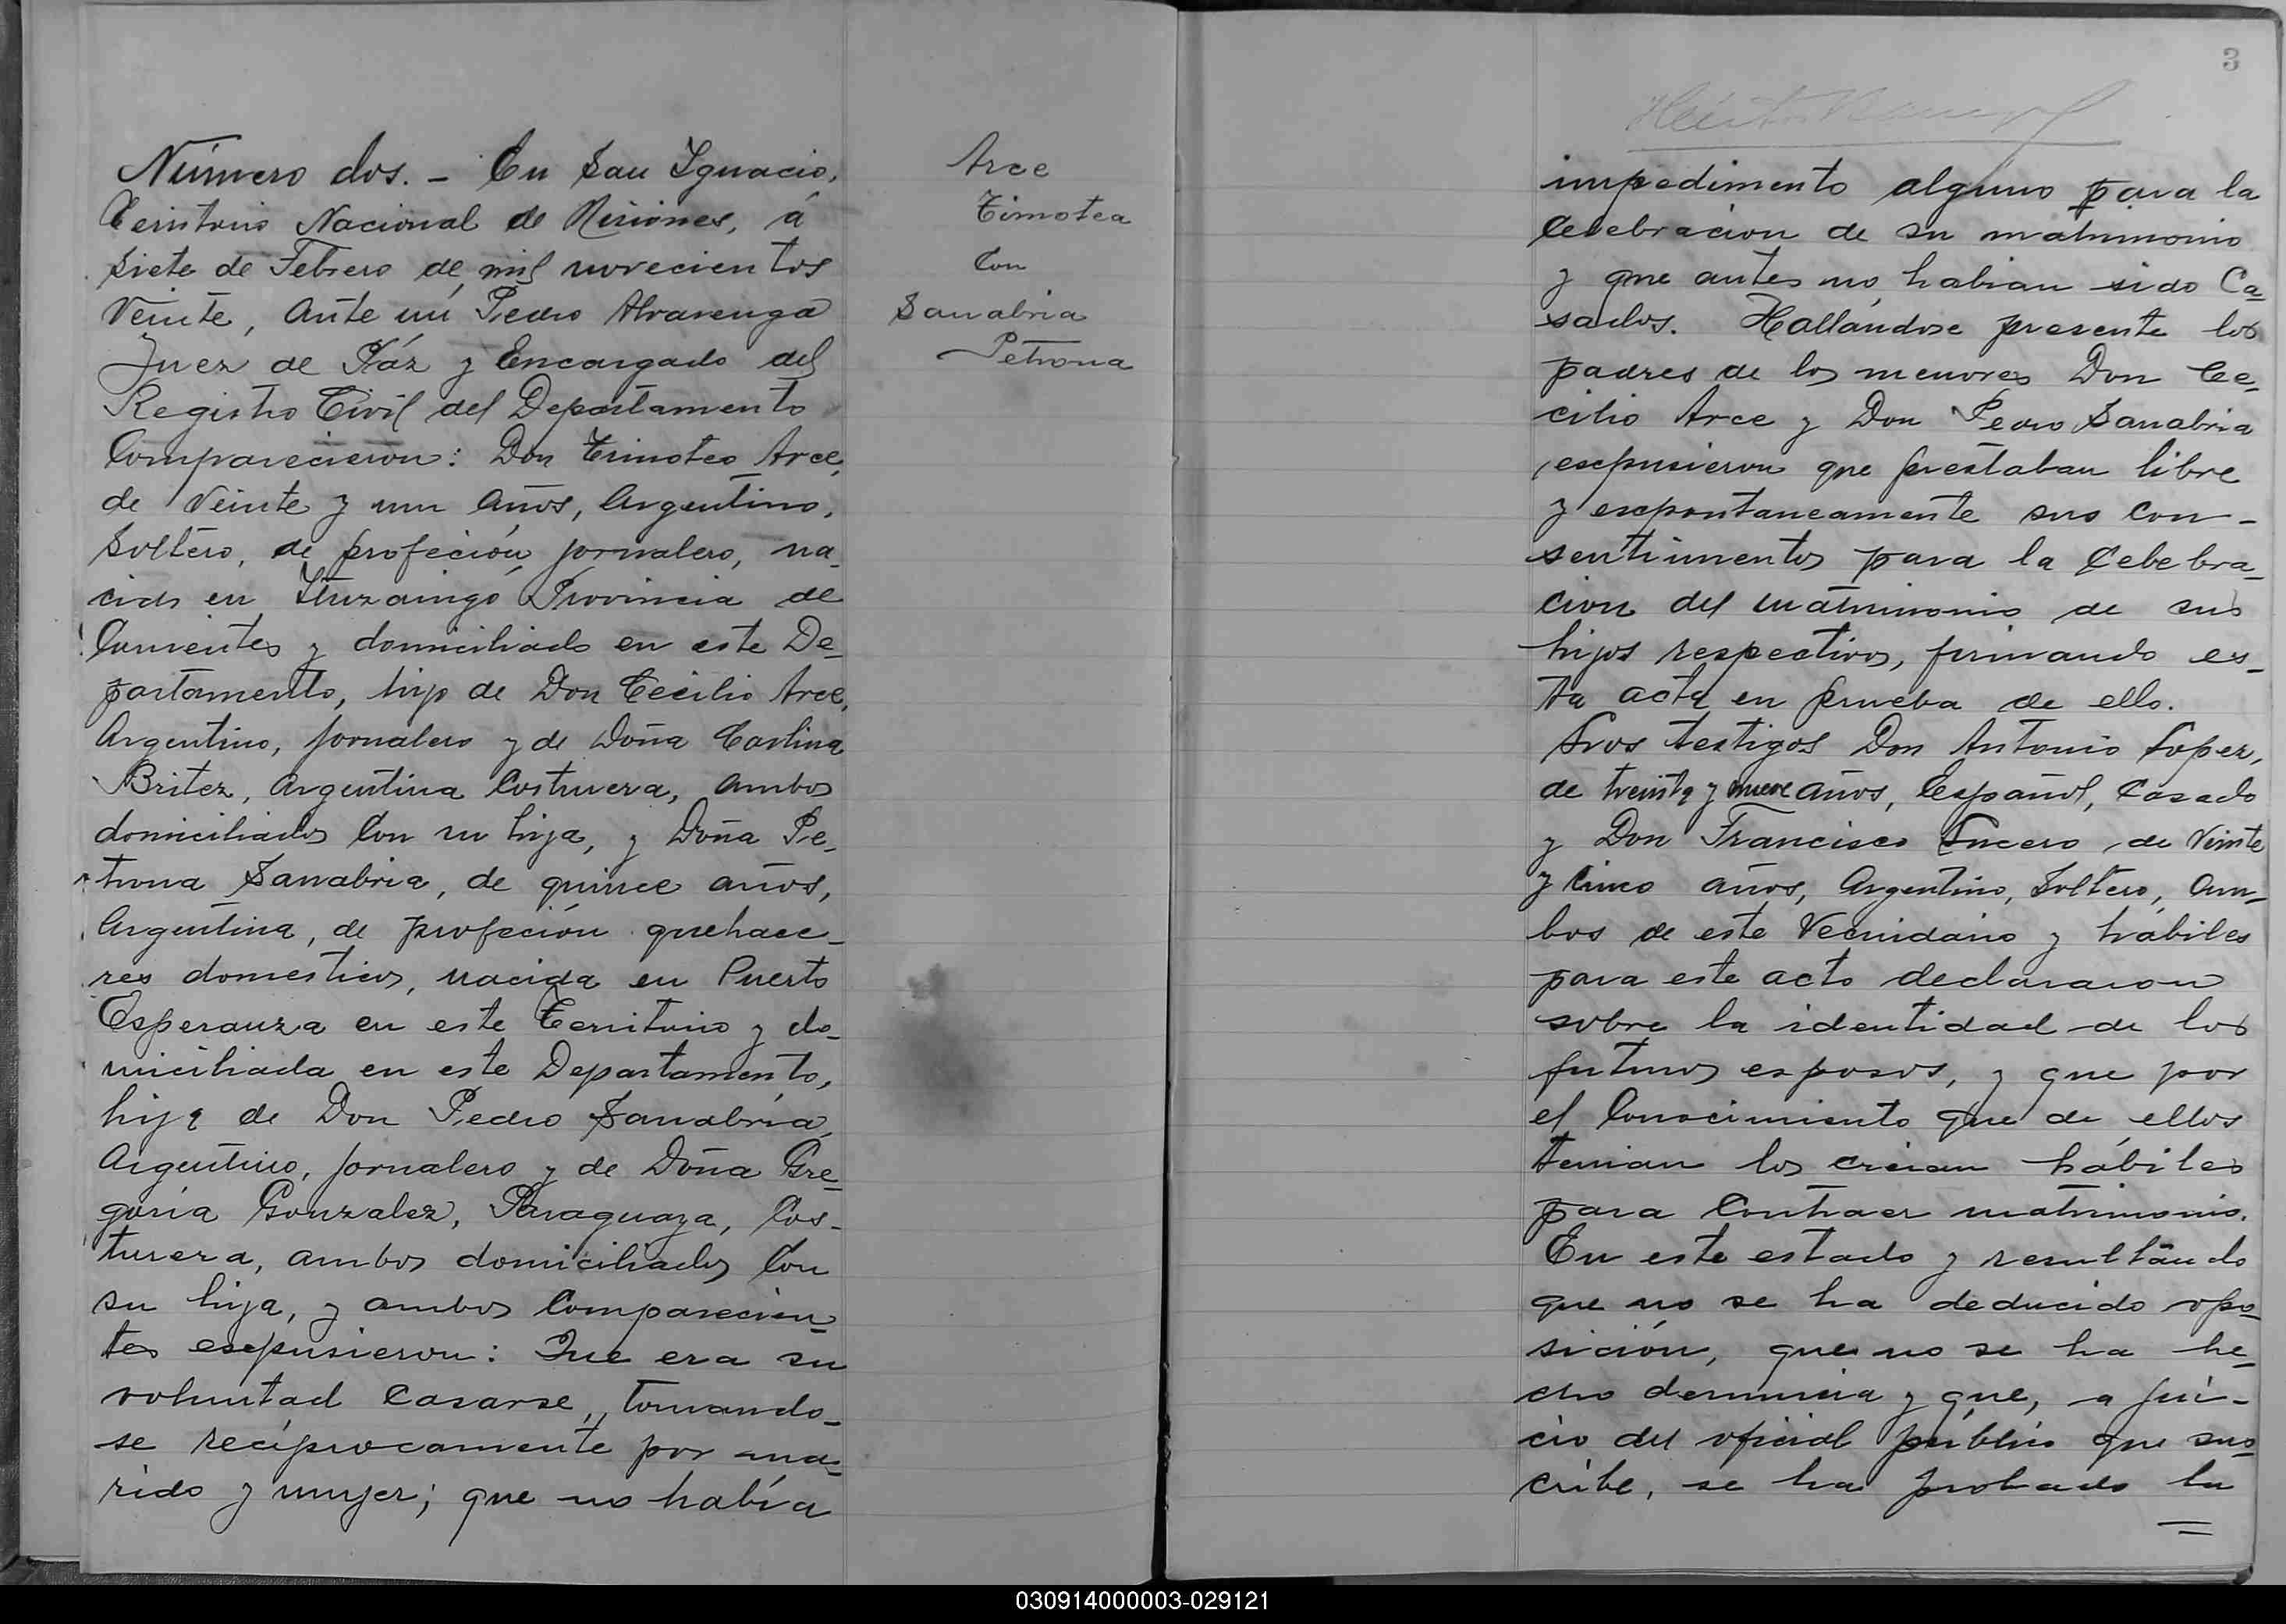 Número dos. - En San Ignacio,
Territorio Nacional de Misiones, á
siete de Febrero de mil novecientos
veinte, ante mí Pedro Alvarenga
Juez de Páz y Encargado del
Registro Civil del Departamento
Comparecieron: Don Timoteo Arce,
de veinte y un años, Argentino,
soltero, de profeción jornalero, na-
cido en Ituzaingó Provincia de
Corrientes y domiciliado en este De-
partamento, hijo de Don Cecilio Arce,
Argentino, jornalero y de Doña Carlina
Britez, Argentina Costurera, ambos
domiciliados Con su hija, y Doña Pe-
trona Sanabria, de quince años,
Argentina, de profeción quehace-
res domesticos, nacida en Puerto
Esperanza en este Territorio y do-
miciliada en este Departamento,
hija de Don Pedro Sanabria,
Argentino, jornalero y de Doña Gre-
goria Gonzalez, Paraguaya, Cos-
turera, ambos domiciliados Con
su hija, y ambos Comparecien-
tes expusieron: Que era su
voluntad Casarse, tomando-
se recíprocamente por ma-
rido y mujer; que no había
Arce
Timotea
Con
Sanabria
Petrona
3
impedimento alguno para la
Celebracion de su matrimonio
y que antes no habian sido Ca-
sados. Hallándose presente los
padres de los menores Don Ce-
cilio Arce y Don Pedro Sanabria
expusieron que prestaban libre
y expontaneamente sus con-
sentimentos para la Celebra-
cion del matrimonio de sus
hijos respectivos, firmando es-
ta acta en prueba de ello.
Los testigos Don Antonio Lopez,
de treinta y nueve años, Español, Casado
y Don Francisco Lucero, de veinte
y cinco años, Argentino, Soltero, am-
bos de este Vecindario y hábiles
para este acto declararon
sobre la identidad de los
futuros esposos, y que por
el Conocimiento que de ellos
tenian los creian hábiles
para Contraer matrimonio.
En este estado y resultando
que no se ha deducido opo-
sición, que no se ha he-
cho denuncia y que, a jui-
cio del oficial público que sus-
cribe, se ha probado la
030914000003-029121